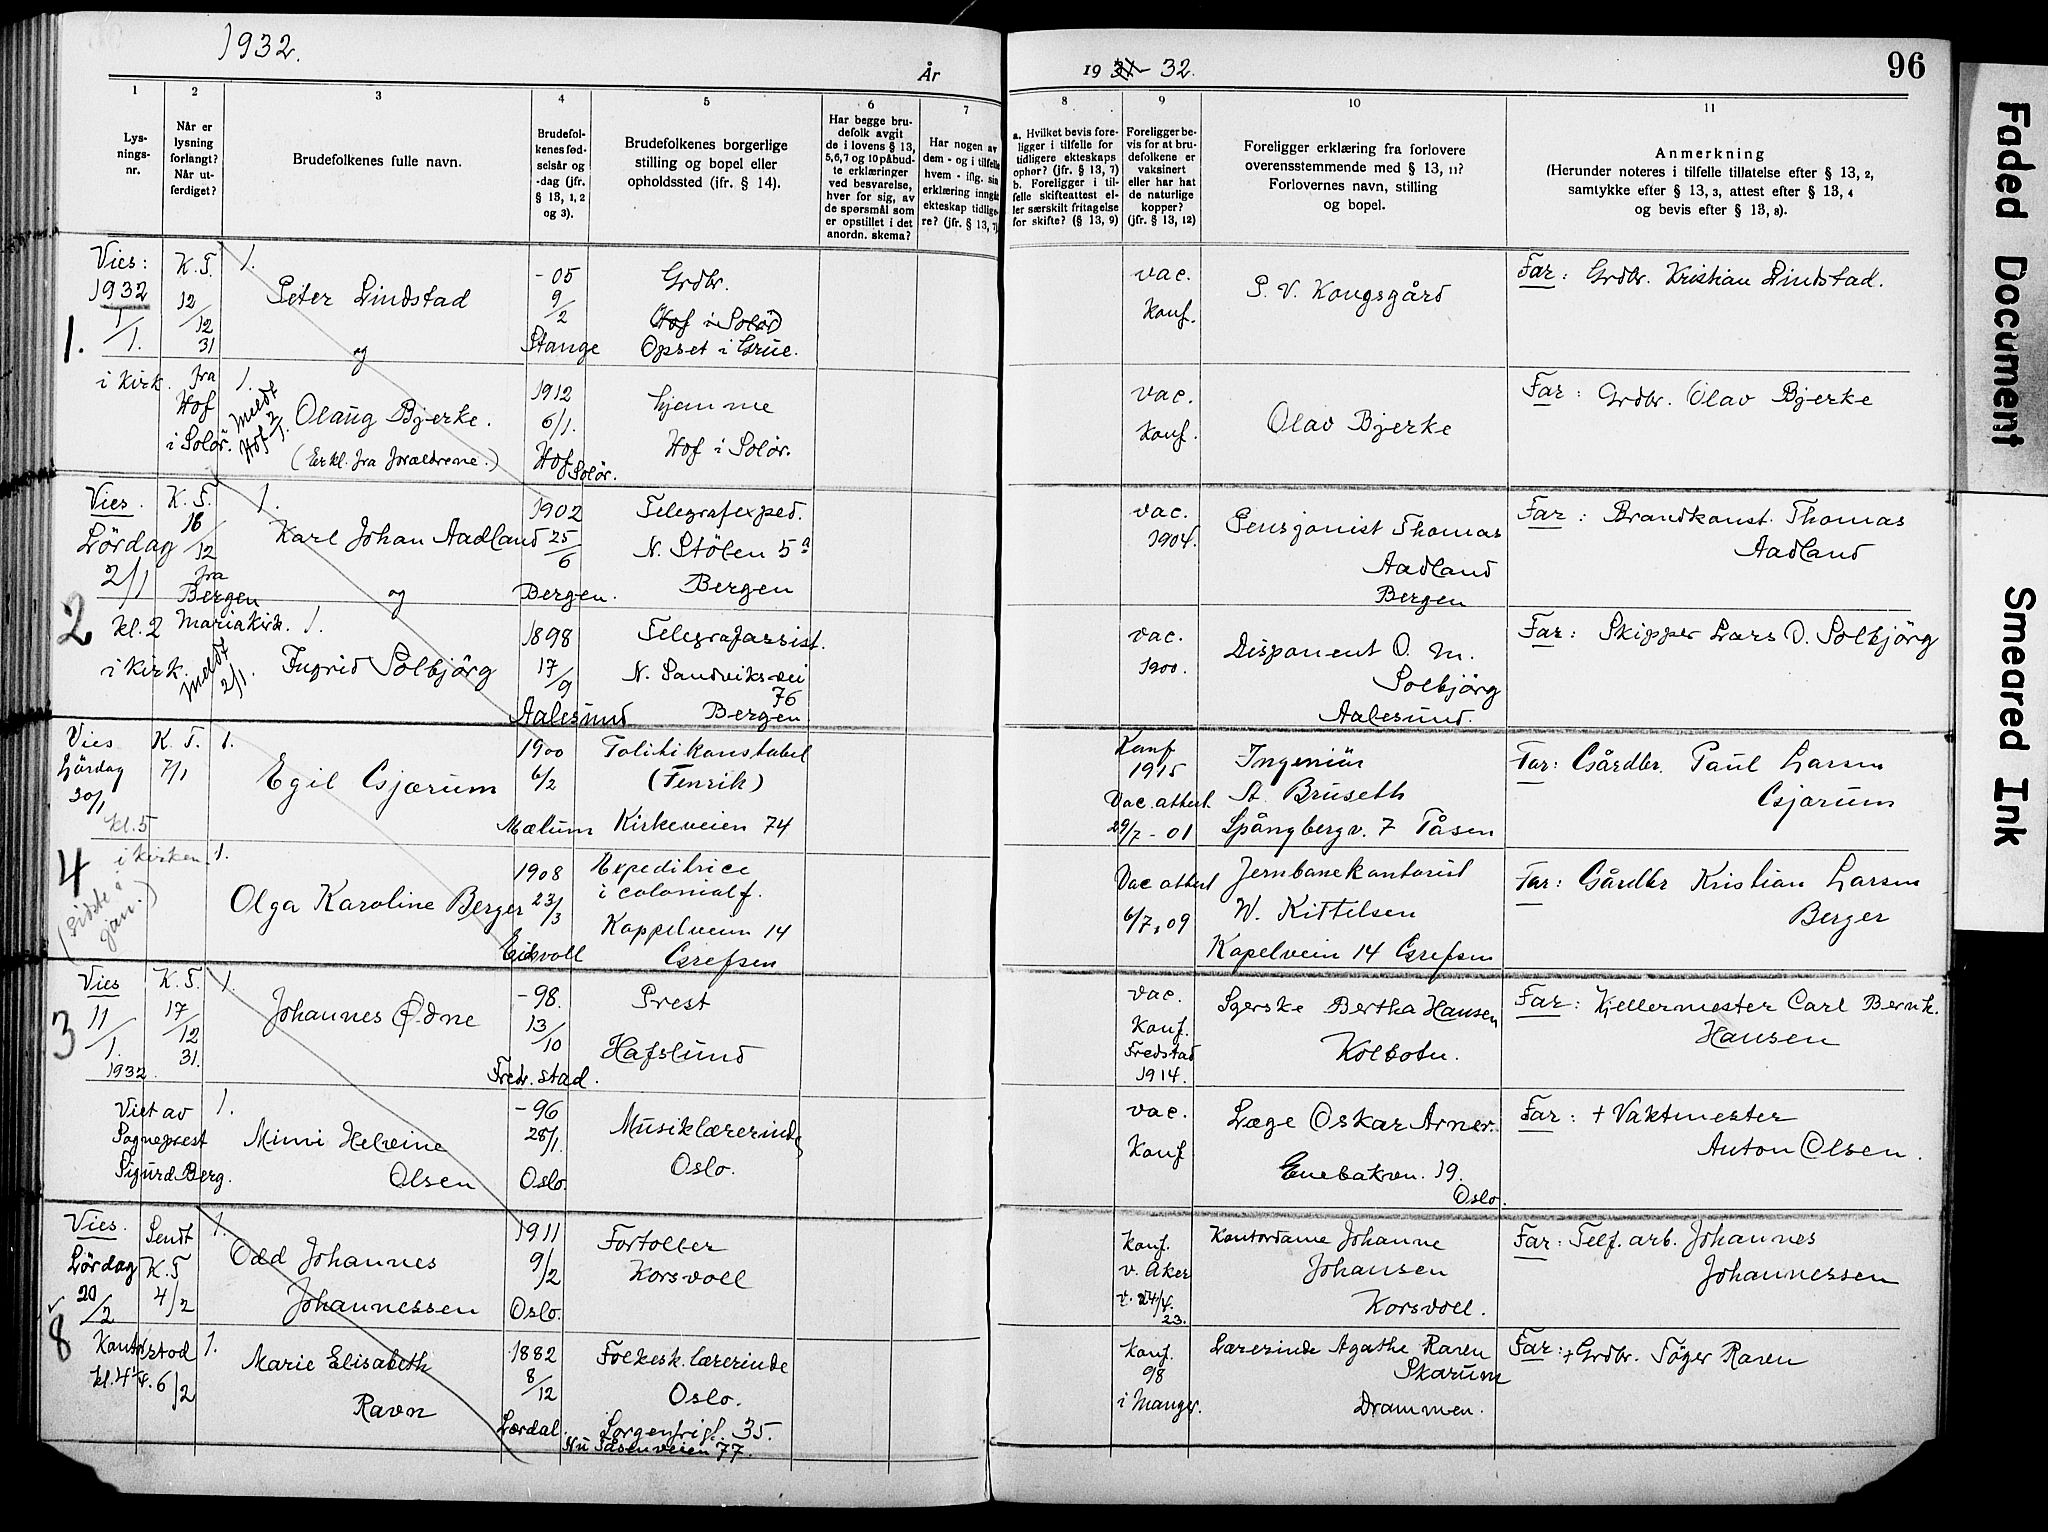 1932.
År
1
2
3
4
5
6
7
Lys-
nings-
nr.
Når er
lysning
forlangt?
Når ut-
ferdiget?
Brudefolkenes fulle navn.
Brudefol-
kenes fød-
selsår og
-dag (jfr.
§ 13, 1, 2
og 3).
Brudefolkenes borgerlige
stilling og bopel eller
opholdssted (ifr. § 14).
Har begge bru-
defolk avgit
de i lovens § 13,
5,6,7 og 10 påbud-
te erklæringer
ved besvarelse,
hver for sig, av
de spørsmål som
er opstillet i det
anordn. skema?
Har nogen av
dem - og i tilfelle
hvem - iflg. sin
erklæring inngåt
ekteskap tidlige-
re? (jfr. § 13, 7)
Vies:
1932
1/1.
i kirk.
1.
K. T.
12/12
31
fra
Hof
i Solør.
1.
Peter Lindstad
og
- 05
9/2
Stange
Grdbr.
Hof i Solør
Opset i Grue.
1.
meldt
Hof 2/1.
Olaug Bjerke.
(Erkl. fra foreldrene.)
1912
6/1.
Hof Solør.
hjemme
Hof i Solør.
Vies.
Lördag
2/1
kl. 2
i kirk.
2
K. T.
18/12
fra
Bergen
Mariakirk.
meldt
2/1.
1.
Karl Johan Aadland
og
1902
25/6
Bergen.
Telegrafexped.
N. Stölen 5a
Bergen
1.
Ingrid Solbjörg
1898
17/9
Aalesund
Telegrafassist.
N. Sandviksvei
76
Bergen
Vies
Lördag
30/1
kl. 5
i kirken
(sidste i
jan.)
4
K. T.
7/1
1.
Egil Gjærum
1900
6/2
Mælum
Politikonstabel
(Fenrik)
Kirkeveien 74
1.
Olga Karoline Berger
1908
23/3
Eidsvoll
Expeditrice
i colonialf.
Kappelveien 14
Grefsen
Vies
11/1.
1932
3
K. T.
17/12
31.
1.
Johannes Ødne
- 98.
13/10
Fredr. stad.
Prest
Hafslund
Viet av
Sogneprest
Sigurd Berg.
1.
Mimi Helveine
Olsen
- 96
28/1.
Oslo.
Musiklærerinde
Oslo.
Vies.
Lördag
20/2
8
Sendt
K. T
4/2
1.
Odd Johannes
Johannessen
1911
9/2
Oslo.
Fortolber
Korsvoll
Kontorstod
kl. 4 1/4.
6/2
1.
Marie Elisabeth
Ravn
1882
8/12
Lærdal.
Folkesk. lærerinde
Oslo.
Sorgenfrigt. 35.
Nu Tåsenveien 77.
19 31 32.
96
8
9
10
11
a. Hvilket bevis fore-
ligger i tilfelle for
tidligere ekteskaps
ophør? (jfr. § 13, 7)
b. Foreligger i til-
felle skifteattest el-
ler særskilt fritagelse
for skifte? (§ 13, 9)
Foreligger be-
vis for at bru-
defolkene er
vaksinert
eller har hat
de naturlige
kopper?
(jfr. § 13, 12)
Foreligger erklæring fra forlovere
overensstemmende med § 13, 11?
Forlovernes navn, stilling
og bopel.
Anmerkning
(Herunder noteres i tilfelle tillatelse efter § 13, 2,
samtykke efter § 13, 3, attest efter § 13, 4
og bevis efter § 13, 8).
vac.
Konf.
S. V. Kongsgård
Far: Grdbr. Kristian Lindstad.
vac.
Konf.
Olav Bjerke
Far: Grdbr. Olav Bjerke
vac.
1904.
Pensjonist Thomas
Aadland
Bergen
Far: Brandkonst. Thomas
Aadland
vac.
1900.
Disponent O. M.
Solbjörg
Aalesund.
Far: Skipper Lars D. Solbjörg
Konf
1915
Vac. attest
29/7 - 01
Ingeniör
A. Bruseth
Spångbergv. 7 Tåsen
Far: Gårdbr. Paul Larsen
Gjærum
Vac attest
6/7.09
Jernbanekontorist
W. Kittelsen
Kapelveien 14 Grefsen
Far: Gårdbr Kristian Larsen
Berger
vac.
Konf.
Fredstad
1914.
Bertha Hansen
Kolbotn.
Far: Kjellermester Carl Bernh.
Hansen
vac.
Konf
Læge Oskar Arner.
Enebakvn. 19.
Oslo.
Far: + Vaktmester
Anton Olsen.
Konf.
v. Aker
v. 24/4.
23.
Kontordame Johanne
Johansen
Korsvoll.
Far: Telf. arb. Johannes
Johannessen
Konf.
98
i Manger.
Lærerinde Agathe Raven
Skarum
Drammen.
Far: + Grdbr. Töger Raven
Faded Document
Smeared Ink